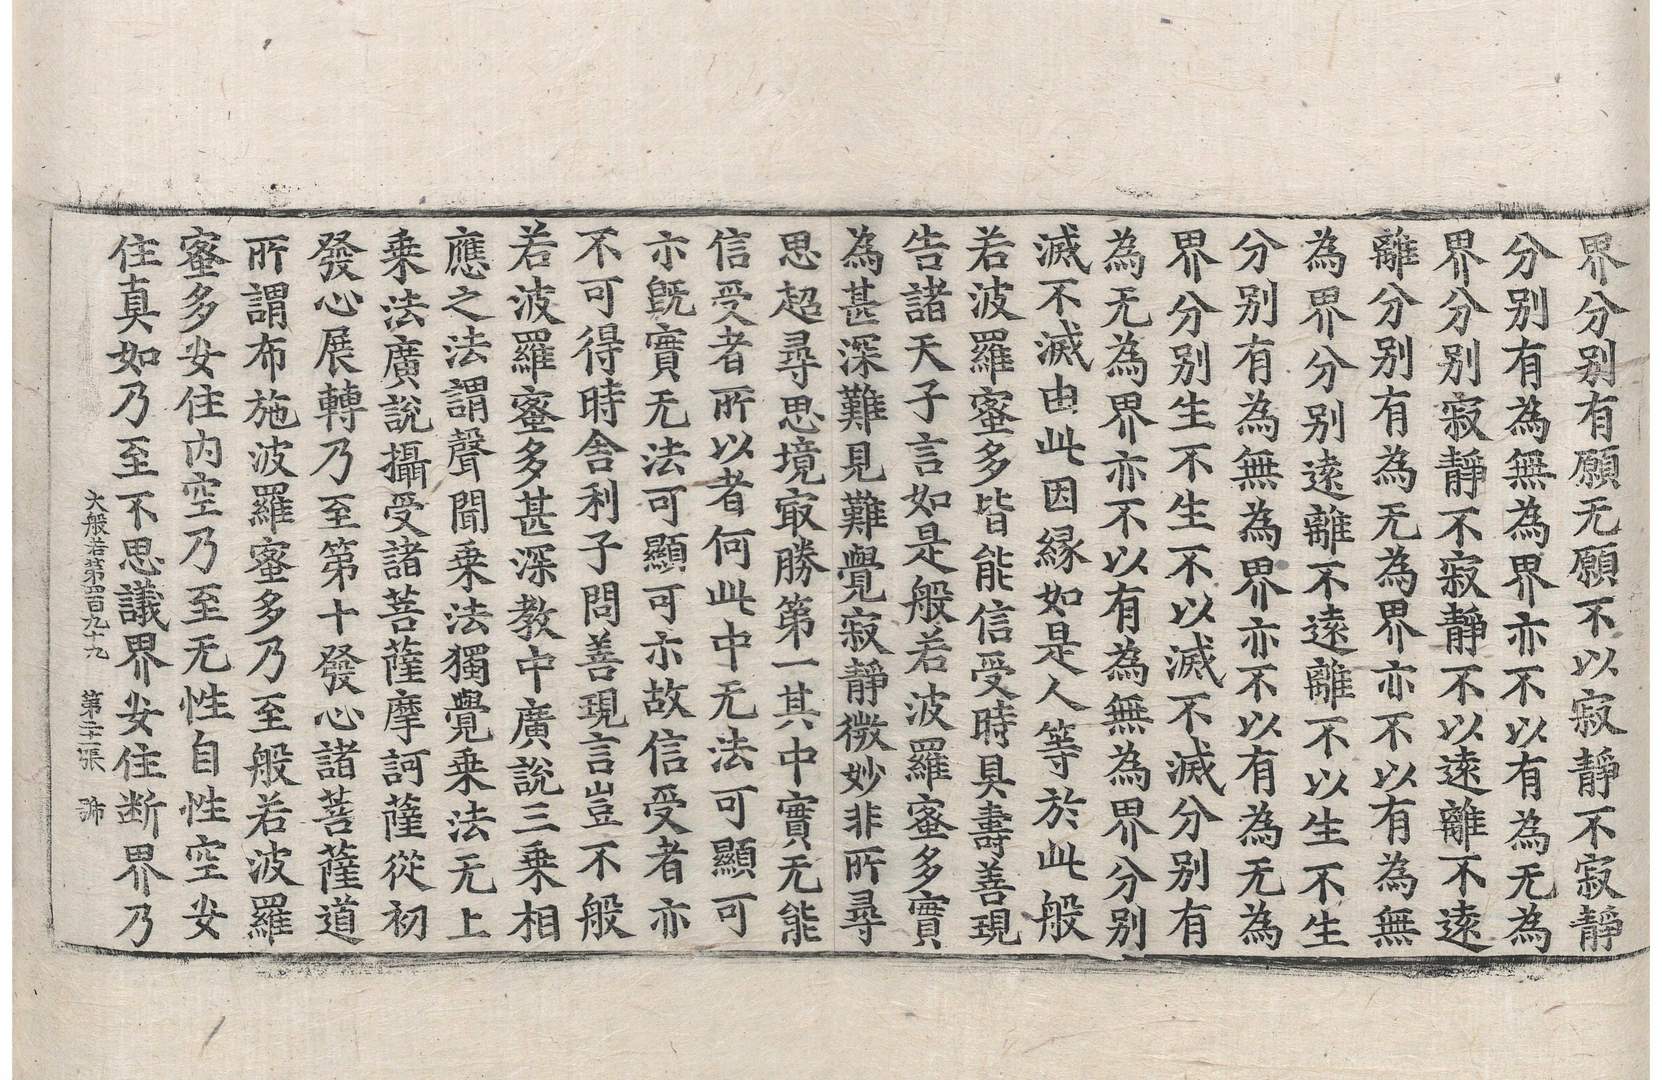 界分別有願无願不以寂靜不寂靜
分別有為無為界亦不以有為无為
界分別寂靜不寂靜不以遠離不遠
離分別有為无為界亦不以有為無
為界分別遠離不遠離不以生不生
分別有為無為界亦不以有為无為
界分別生不生不以滅不滅分別有
為无為界亦不以有為無為界分別
滅不滅由此因緣如是人等於此般
若波羅蜜多皆能信受時具壽善現
告諸天子言如是般若波羅蜜多實
為甚深難見難覺寂靜微妙非所尋
思超尋思境㝡勝第一其中實无能
信受者所以者何此中无法可顯可
亦既實无法可顯可亦故信受者亦
不可得時舍利子問善現言豈不般
若波羅蜜多甚深教中廣說三乘相
應之法謂聲聞乘法獨覺乘法无上
乘法廣說攝受諸菩薩摩訶薩從初
發心展轉乃至第十發心諸菩薩道
所謂布施波羅蜜多乃至般若波羅
蜜多安住內空乃至无性自性空安
住真如乃至不思議界安住斷界乃
大般若第四百九十九 第二十二張 師